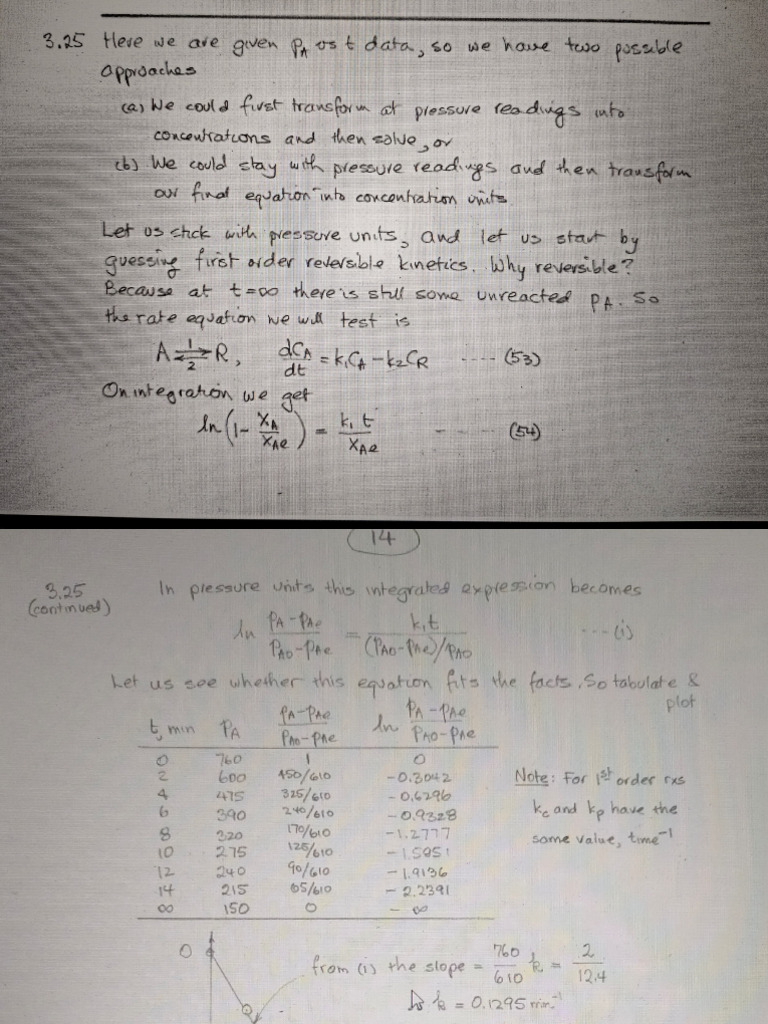 3.25 Here we are given pA vs t data, so we have two possible
approaches
(a) We could first transform at pressure readings into
concentrations and then solve, or
(b) We could stay with pressure readings and then transform
our final equation into concentration units
Let us stick with pressure units, and let us start by
guessing first order reversible kinetics. Why reversible?
Because at t=∞ there is still some unreacted pA. So
the rate equation we will test is
A ⇌ R, 1 2 dCA/dt = k1CA - k2CR ---- (53)
On integration we get
ln(1 - XA/XAe) = k1 t/XAe - - - - - (54)
14
3.25 In pressure units this integrated expression becomes
(continued)
ln (pA-pAe)/(pAo-pAe) = k1t/((pAo-pAe)/pAo) ---- (i)
Let us see whether this equation fits the facts. So tabulate &
plot
t, min pA (pA-pAe)/(pAo-pAe) ln (pA-pAe)/(pAo-pAe)
0 760 1 0
2 600 450/610 -0.3042 Note: For 1st order rxs
4 475 325/610 -0.6296 kc and kp have the
6 390 240/610 -0.9328
8 320 170/610 -1.2777 same value, time-1
10 275 125/610 -1.5851
12 240 90/610 -1.9136
14 215 65/610 -2.2391
∞ 150 0 -∞
0
from (i) the slope = 760/610 k = 2/12.4
k = 0.1295 min-1